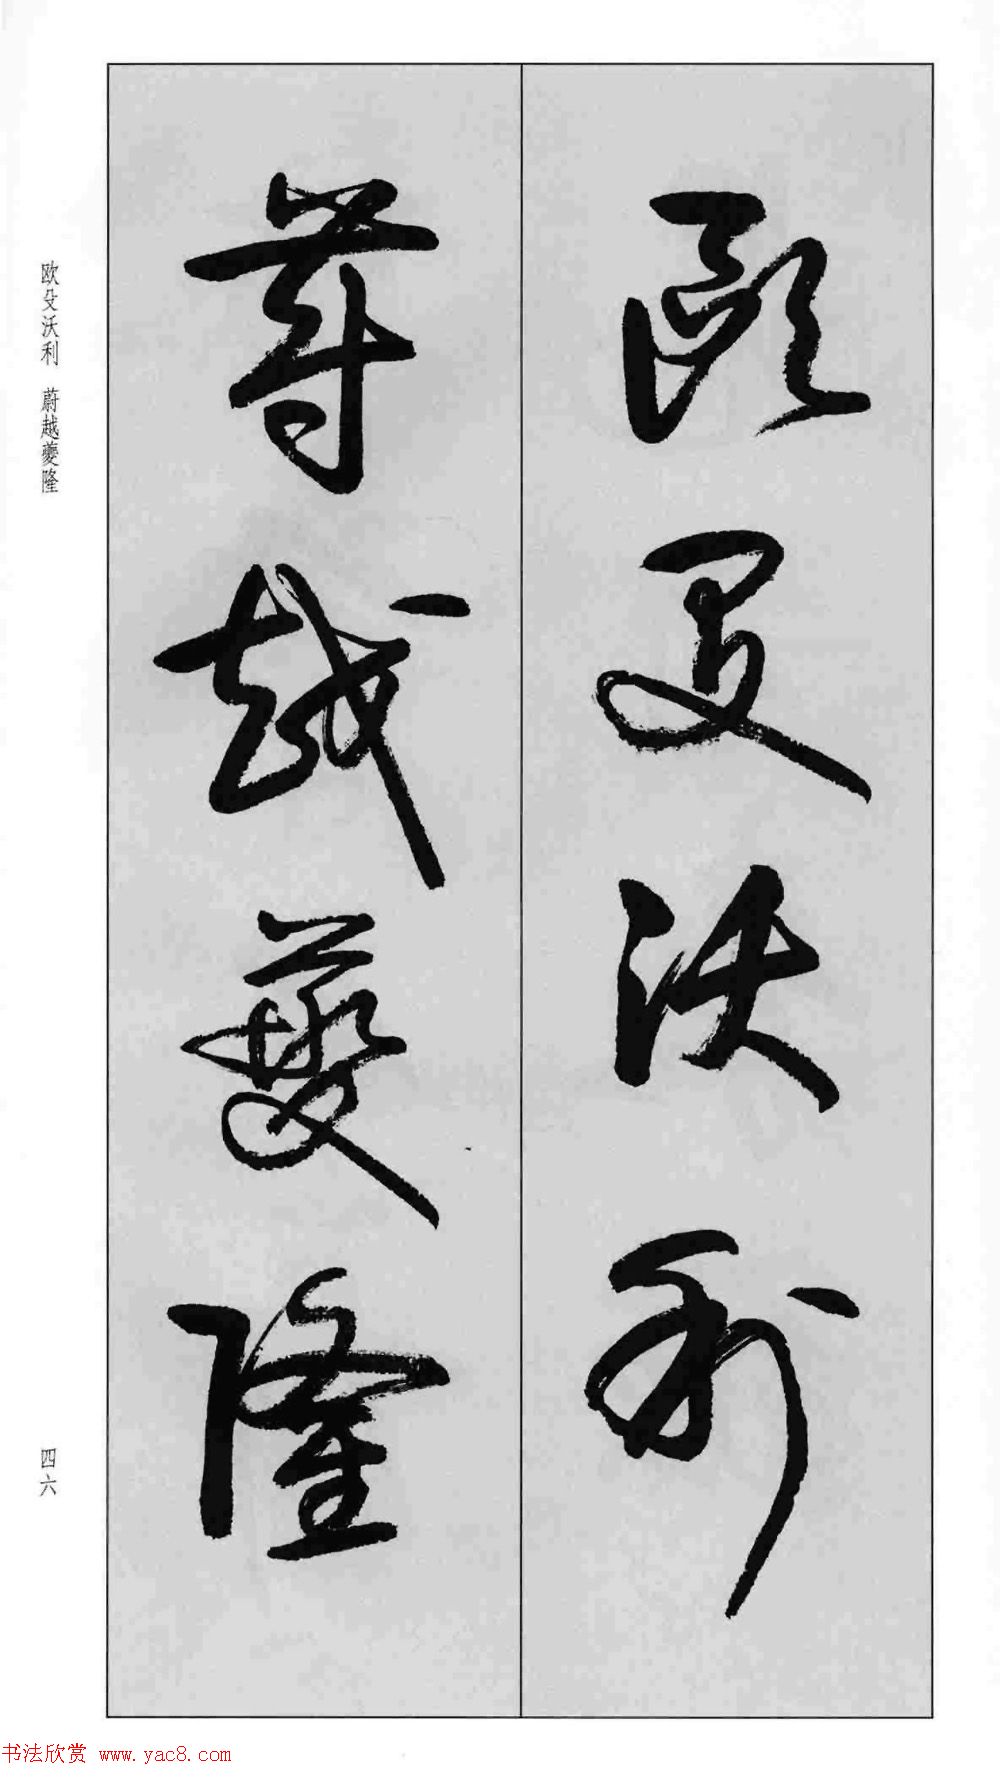 欧殳沃利
蔚越夔隆
欧殳沃利 蔚越夔隆
四六
书法欣赏 www.yac8.com